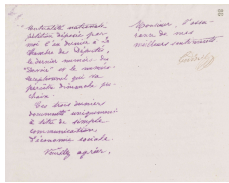 nationale
pétition déposée par
moi d'au dernier à la
Chambre des Députés,
le dernier numéro du
"Devoir" et le numéro
exceptionnel qui va
paraître dimanche pro-
chain.
Ces trois derniers
documents uniquement
à titre de simple
communication
d'économie sociale.
Veuillez agréer,
Monsieur, l'assu-
rance de mes
meilleurs sentiments